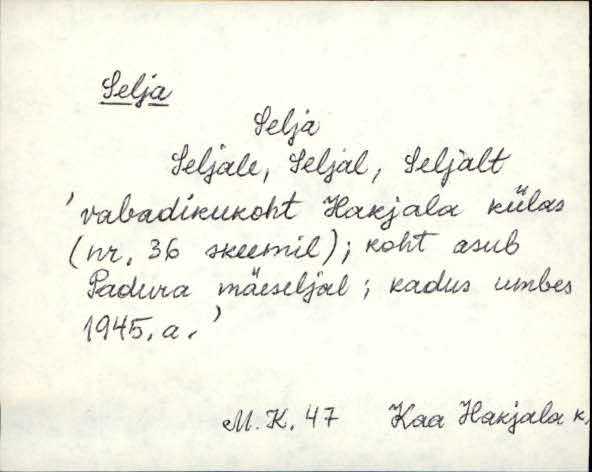 Selja
Selja
Seljale, Seljal, Seljalt
'vabadikukoht Hakjala külas
(nr. 36 skeemil); koht asub
Padura mäeseljal; kadus umbes
1945. a.'
M.K. 47 Kaa Hakjala k.